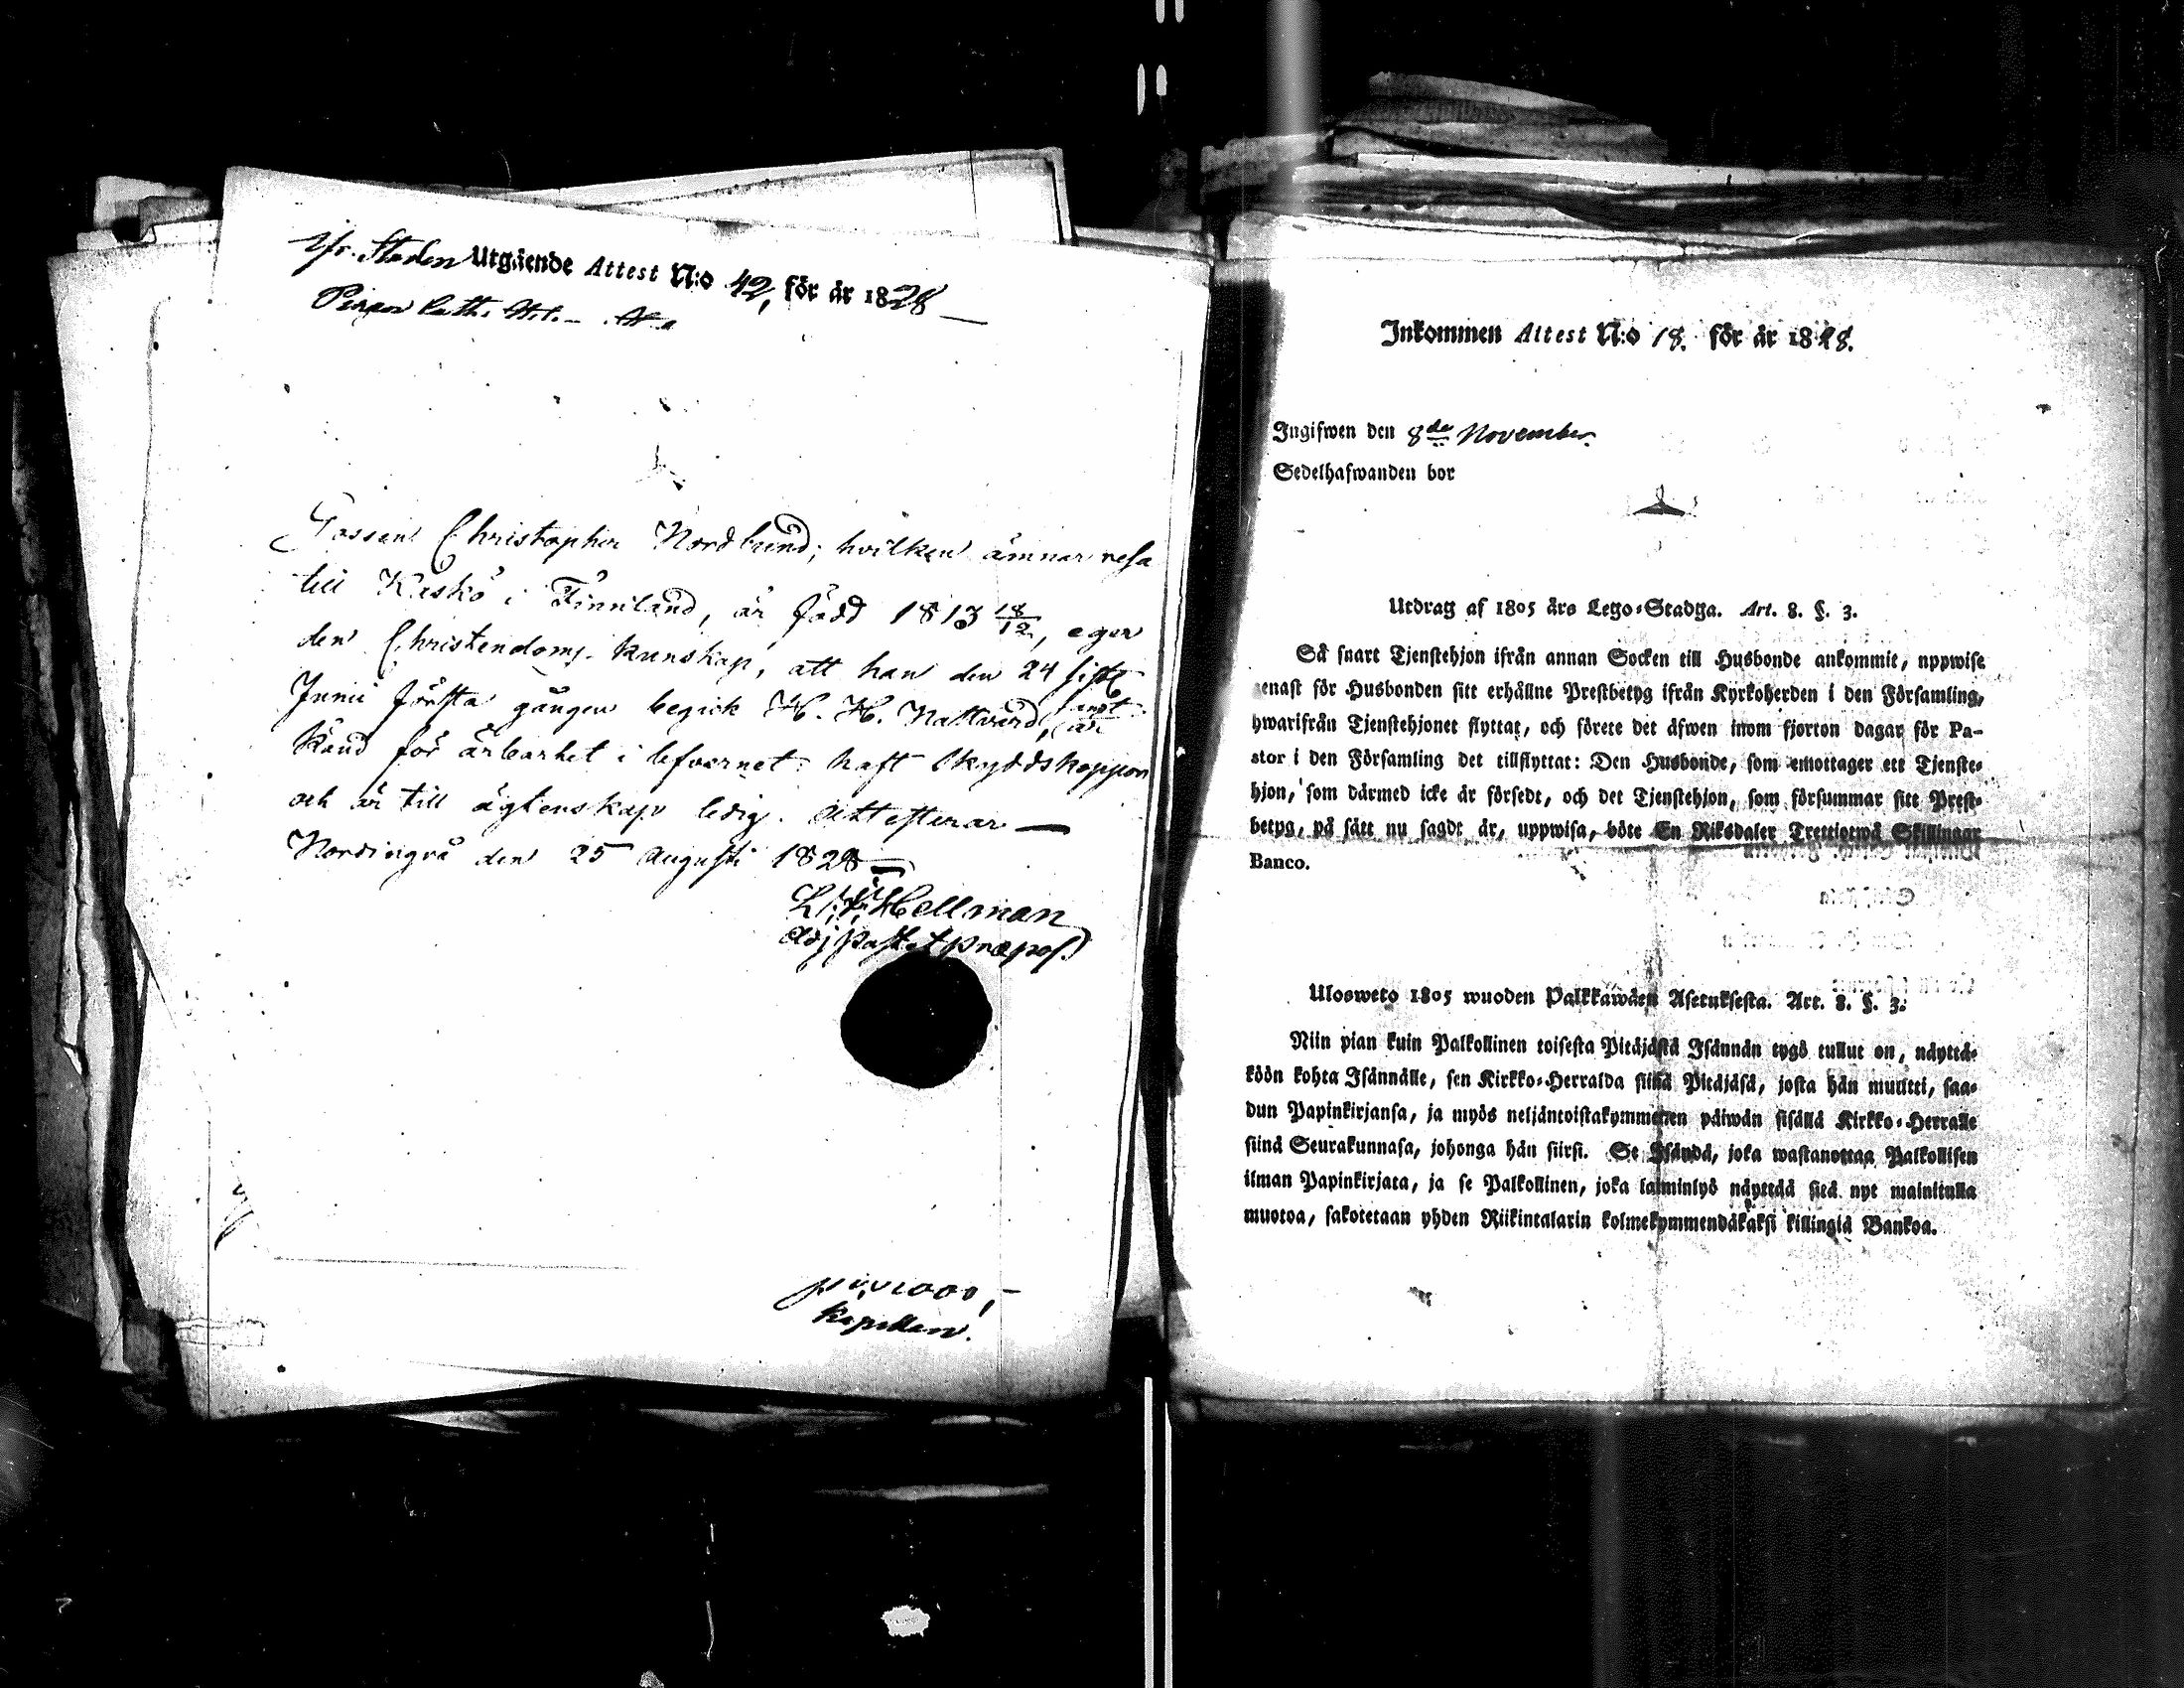 Staden Utgående Attest N:o 42, för år 1828
Gossen Christopher Nordlund; hvilken ämnar resa
till Kaskö i Finnland, är född 1813 18/12, eger
den Christendoms-kunskap, att han den 24 sistl.
Junii första gången begick H. H. Nattvard, samt är
känd för ärbarhet i lefvernet: haft skyddskoppor
och är till ägtenskap ledig. Attesterar
Nordingrå den 25 Augusti 1828
Hellman
Adj Past et præpos.
Kapellan.
Inkommen Attest N:o 18. för år 1828.
Ingifwen den 8de November.
Sedelhafwanden bor
Utdrag af 1805 års Lego-Stadga. Art. 8. §. 3.
Så snart Tjenstehjon ifrån annan Socken till Husbonde ankommit, uppwise
genast för Husbonden sitt erhållne Prestbetyg ifrån Kyrkoherden i den Församling,
hwarifrån Tjenstehjonet flyttat, och förete det äfwen inom fjorton dagar för Pa-
stor i den Församling det tillflyttat: Den Husbonde, som emottager ett Tjenste-
hjon, som därmed icke är försedt, och det Tjenstehjon, som försummar sitt Prest-
betyg, på sätt nu sagdt är, uppwisa, böte En Riksdaler Trettiotwå Skillingar
Banco.
Ulosweto 1805 wuoden Palkkawäen Asetuksesta. Art. 8. §. 3.
Niin pian kuin Palkollinen toisesta Pitäjästä Isännän tygö tullut on, näyttä-
köön kohta Isännälle, sen Kirkko-Herralda siinä Pitäjäsä, josta hän muutti, saa-
dun Papinkirjansa, ja myös neljäntoistakymmenen päiwän sisällä Kirkko-Herralle
siinä Seurakunnasa, johonga hän siirsi. Se Isändä, joka wastanottaa Palkollisen
ilman Papinkirjata, ja se Palkollinen, joka laiminlyö näyttää sitä nyt mainitulla
muotoa, sakotetaan yhden Riikintalarin kolmekymmendäkaksi killingiä Bankoa.